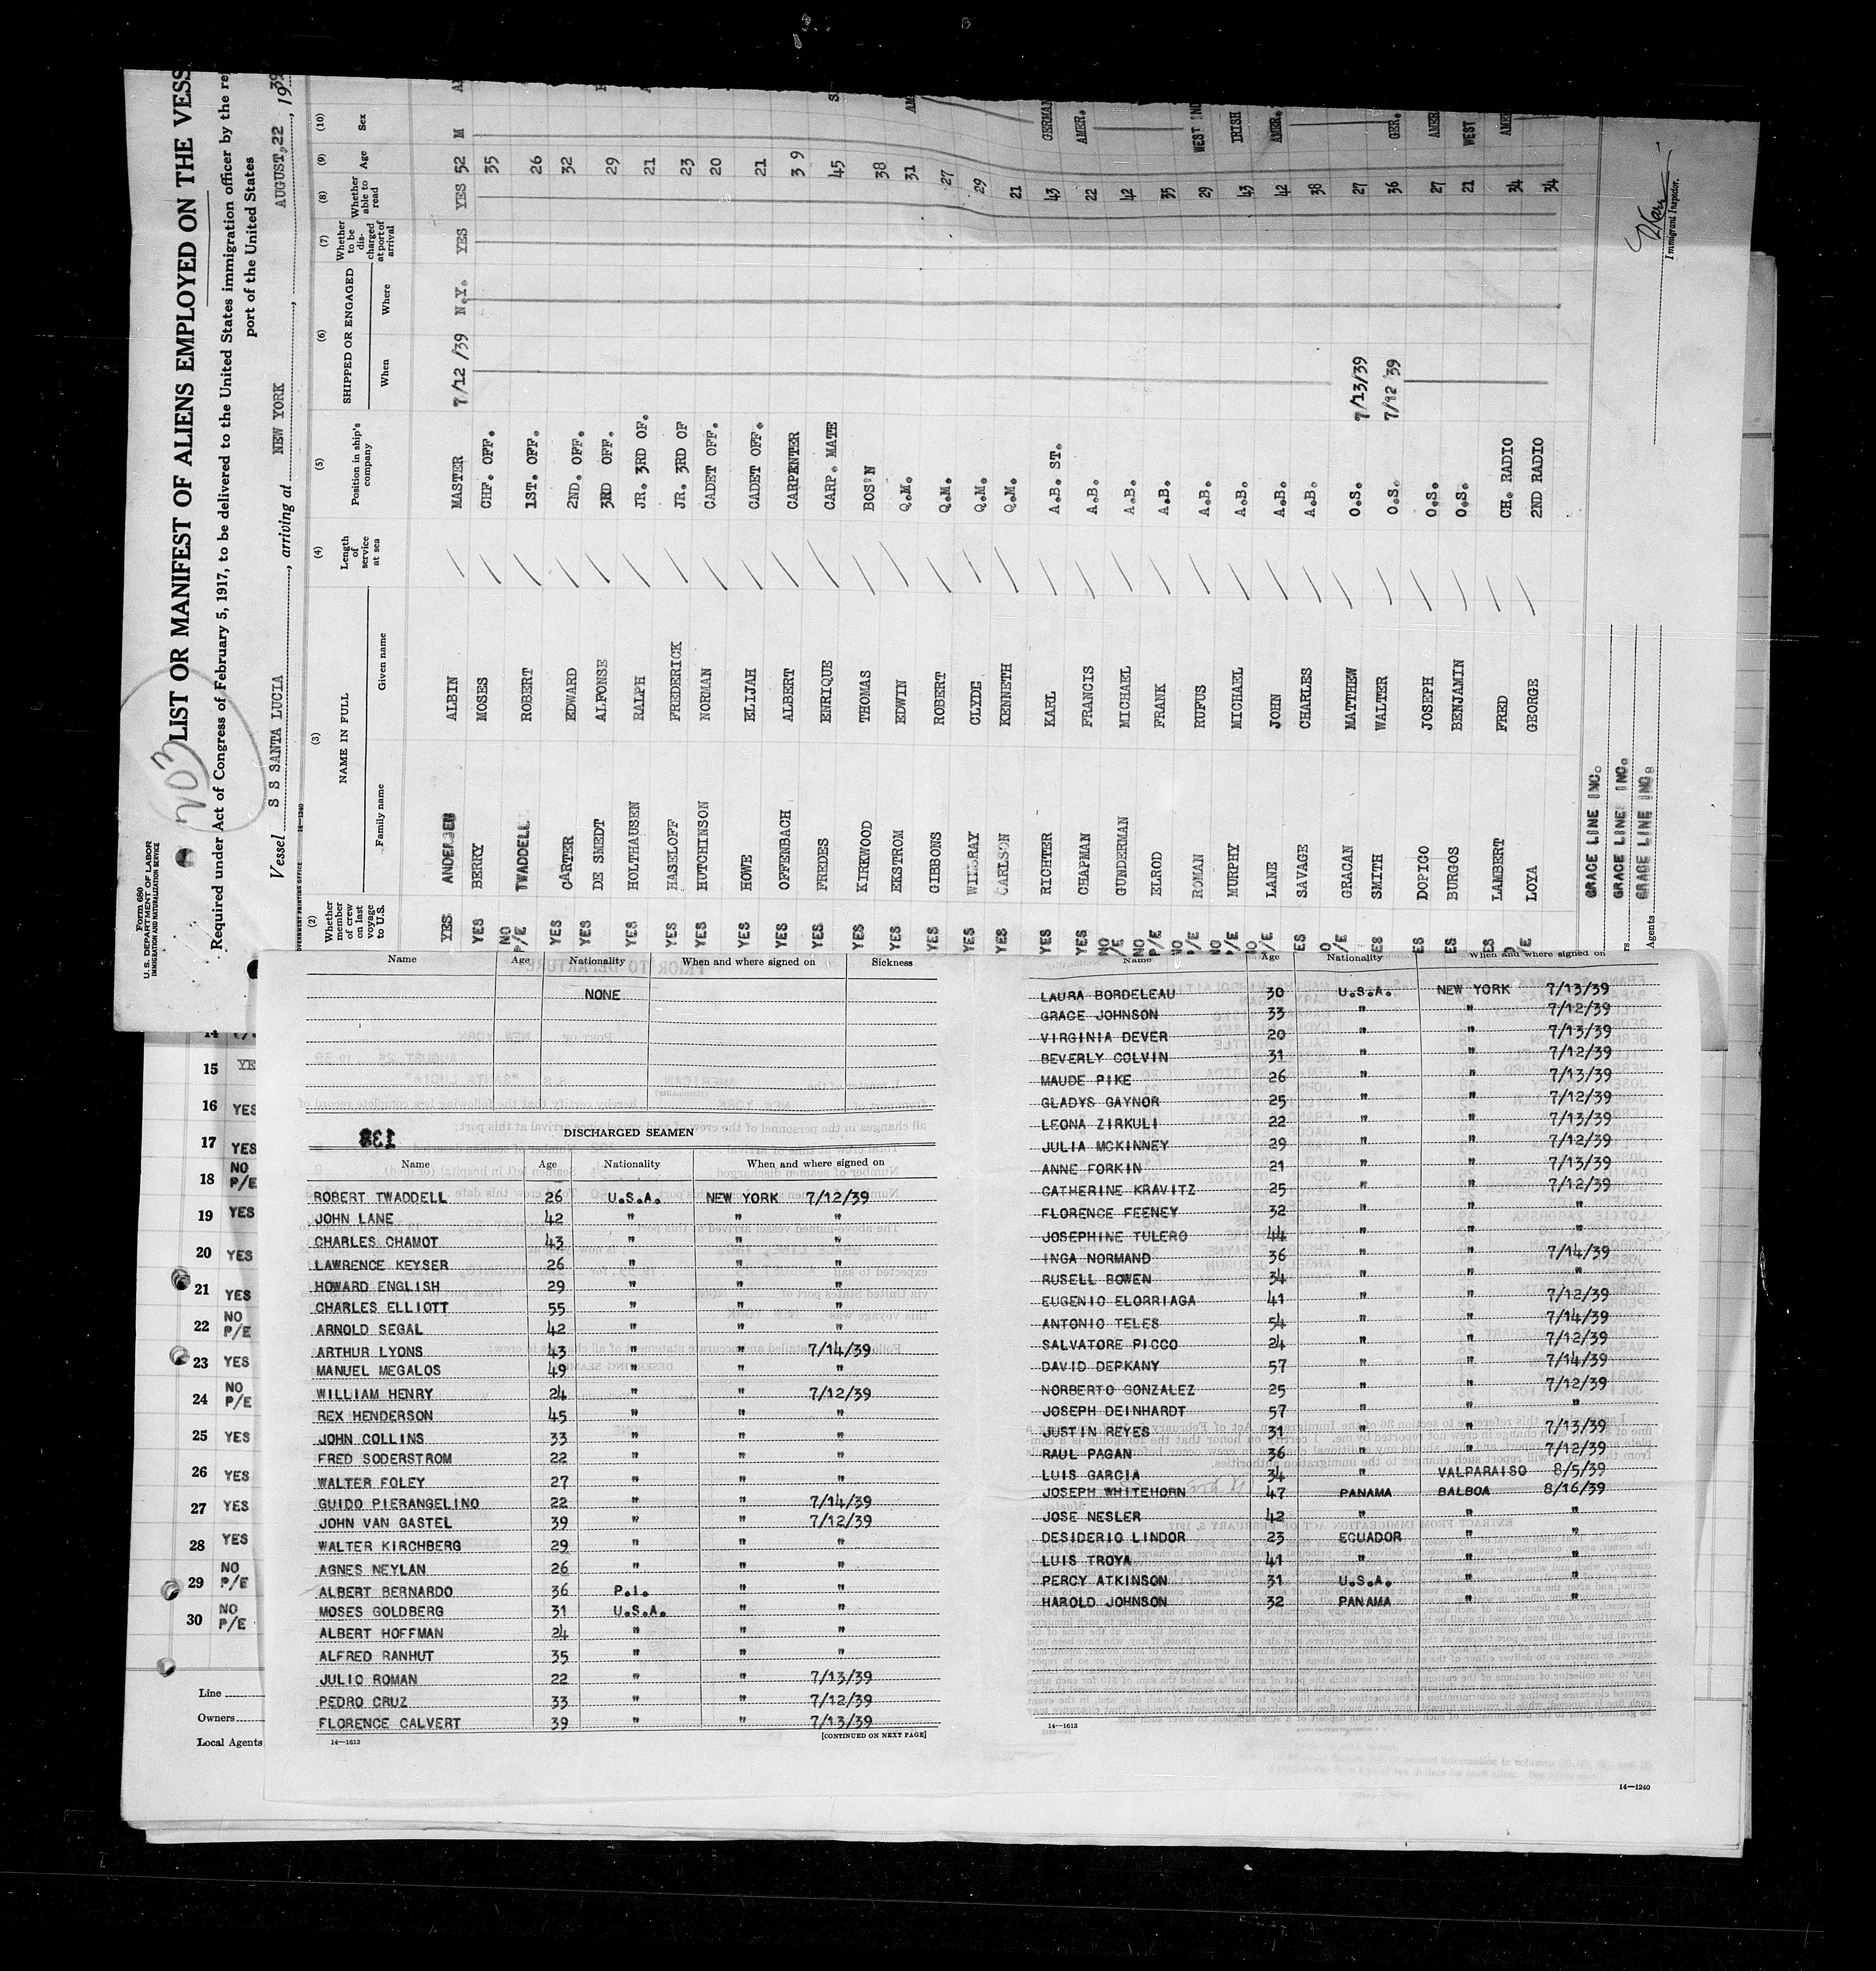 Form 680
U. S. DEPARTMENT OF LABOR
IMMIGRATION AND NATURALIZATION SERVICE
203
LIST OR MANIFEST OF ALIENS EMPLOYED ON THE
Required under Act of Congress of February 5, 1917, to be delivered to the United States immigration officer by the
port of the United States
Vessel S S SANTA LUCIA, arriving at NEW YORK, AUGUST,22, 1939
14—1240
(2) (3) (4) (5) (6) (7) (8) (9) (10)
Whether member of crew on last voyage to U.S. NAME IN FULL Family name Given name Length of service at sea Position in ship's company SHIPPED OR ENGAGED When Where Whether to be discharged at port of arrival Whether able to read Age Sex
YES ANDERSEN ALBIN MASTER 7/12/39 N.Y. YES YES 52 M
YES BERRY MOSES CHF. OFF. 35
NO P/E TWADDELL ROBERT 1ST. OFF. 26
YES CARTER EDWARD 2ND. OFF. 32
YES DE SMEDT ALFONSE 3RD OFF. 29
YES HOLTHAUSEN RALPH JR. 3RD OF. 21
YES HASELOFF FREDERICK JR. 3RD OF 23
YES HUTCHINSON NORMAN CADET OFF. 20
YES HOWE ELIJAH CADET OFF. 21
YES OFFENBACH ALBERT CARPENTER 3 9
YES FREDES ENRIQUE CARP. MATE 45
YES KIRKWOOD THOMAS BOS'N 38
YES EKSTROM EDWIN Q.M. 31
YES GIBBONS ROBERT Q.M. 27
YES WILBRAY CLYDE Q.M. 29
YES CARLSON KENNETH Q.M. 21
YES RICHTER KARL A.B. ST. 43 GERMAN
YES CHAPMAN FRANCIS A.B. 22 AMER.
NO P/E GUNDERMAN MICHAEL A.B. 42
NO P/E ELROD FRANK A.B. 35
NO P/E ROMAN RUFUS A.B. 29 WEST IND
NO P/E MURPHY MICHAEL A.B. 43 IRISH
P/E LANE JOHN A.B. 42 AMER.
ES SAVAGE CHARLES A.B. 38
P/E GRACAN MATTHEW O.S. 7/13/39 27
ES SMITH WALTER O.S. 7/12 39 36 GER.
ES DOPICO JOSEPH O.S. 27 AMER
ES BURGOS BENJAMIN O.S. 21 WEST
ES LAMBERT FRED CH. RADIO 34 AME
/E LOYA GEORGE 2ND RADIO 34
GRACE LINE INC.
GRACE LINE INC.
GRACE LINE INC.
Agents
Immigrant Inspector.
14
15 YE
16 YES
17 YES
18 NO P/E
19 YES
20 YES
21 YES
22 NO P/E
23 YES
24 NO P/E
25 YES
26 YES
27 YES
28 YES
29 NO P/E
30 NO P/E
Line
Owners
Local Agents
Name Age Nationality When and where signed on Sickness
NONE
138
DISCHARGED SEAMEN
Name Age Nationality When and where signed on
ROBERT TWADDELL 26 U.S.A. NEW YORK 7/12/39
JOHN LANE 42 " " "
CHARLES CHAMOT 43 " " "
LAWRENCE KEYSER 26 " " "
HOWARD ENGLISH 29 " " "
CHARLES ELLIOTT 55 " " "
ARNOLD SEGAL 42 " " "
ARTHUR LYONS 43 " " 7/14/39
MANUEL MEGALOS 49 " " "
WILLIAM HENRY 24 " " 7/12/39
REX HENDERSON 45 " " "
JOHN COLLINS 33 " " "
FRED SODERSTROM 22 " " "
WALTER FOLEY 27 " " "
GUIDO PIERANGELINO 22 " " 7/14/39
JOHN VAN GASTEL 39 " " 7/12/39
WALTER KIRCHBERG 29 " " "
AGNES NEYLAN 26 " " "
ALBERT BERNARDO 36 P.I. " "
MOSES GOLDBERG 31 U.S.A. " "
ALBERT HOFFMAN 24 " " "
ALFRED RANHUT 35 " " "
JULIO ROMAN 22 " " 7/13/39
PEDRO CRUZ 33 " " 7/12/39
FLORENCE CALVERT 39 " " 7/13/39
14—1613 [CONTINUED ON NEXT PAGE]
Name Age Nationality When and where signed on
LAURA BORDELEAU 30 U.S.A. NEW YORK 7/13/39
GRACE JOHNSON 33 " " 7/12/39
VIRGINIA DEVER 20 " " 7/13/39
BEVERLY COLVIN 31 " " 7/12/39
MAUDE PIKE 26 " " 7/13/39
GLADYS GAYNOR 25 " " 7/12/39
LEONA ZIRKULI 22 " " 7/13/39
JULIA MCKINNEY 29 " " 7/12/39
ANNE FORKIN 21 " " 7/13/39
CATHERINE KRAVITZ 25 " " 7/12/39
FLORENCE FEENEY 32 " " "
JOSEPHINE TULERO 44 " " "
INGA NORMAND 36 " " 7/14/39
RUSELL BOWEN 34 " " "
EUGENIO ELORRIAGA 41 " " 7/12/39
ANTONIO TELES 54 " " 7/14/39
SALVATORE PICCO 24 " " 7/12/39
DAVID DEPKANY 57 " " 7/14/39
NORBERTO GONZALEZ 25 " " 7/12/39
JOSEPH DEINHARDT 57 " " "
JUSTIN REYES 31 " " 7/13/39
RAUL PAGAN 36 " " 7/12/39
LUIS GARCIA 34 " VALPARAISO 8/5/39
JOSEPH WHITEHORN 47 PANAMA BALBOA 8/16/39
JOSE NESLER 42 " " "
DESIDERIO LINDOR 23 ECUADOR " "
LUIS TROYA 41 " " "
PERCY ATKINSON 31 U.S.A. " "
HAROLD JOHNSON 32 PANAMA " "
14—1613
14—1240